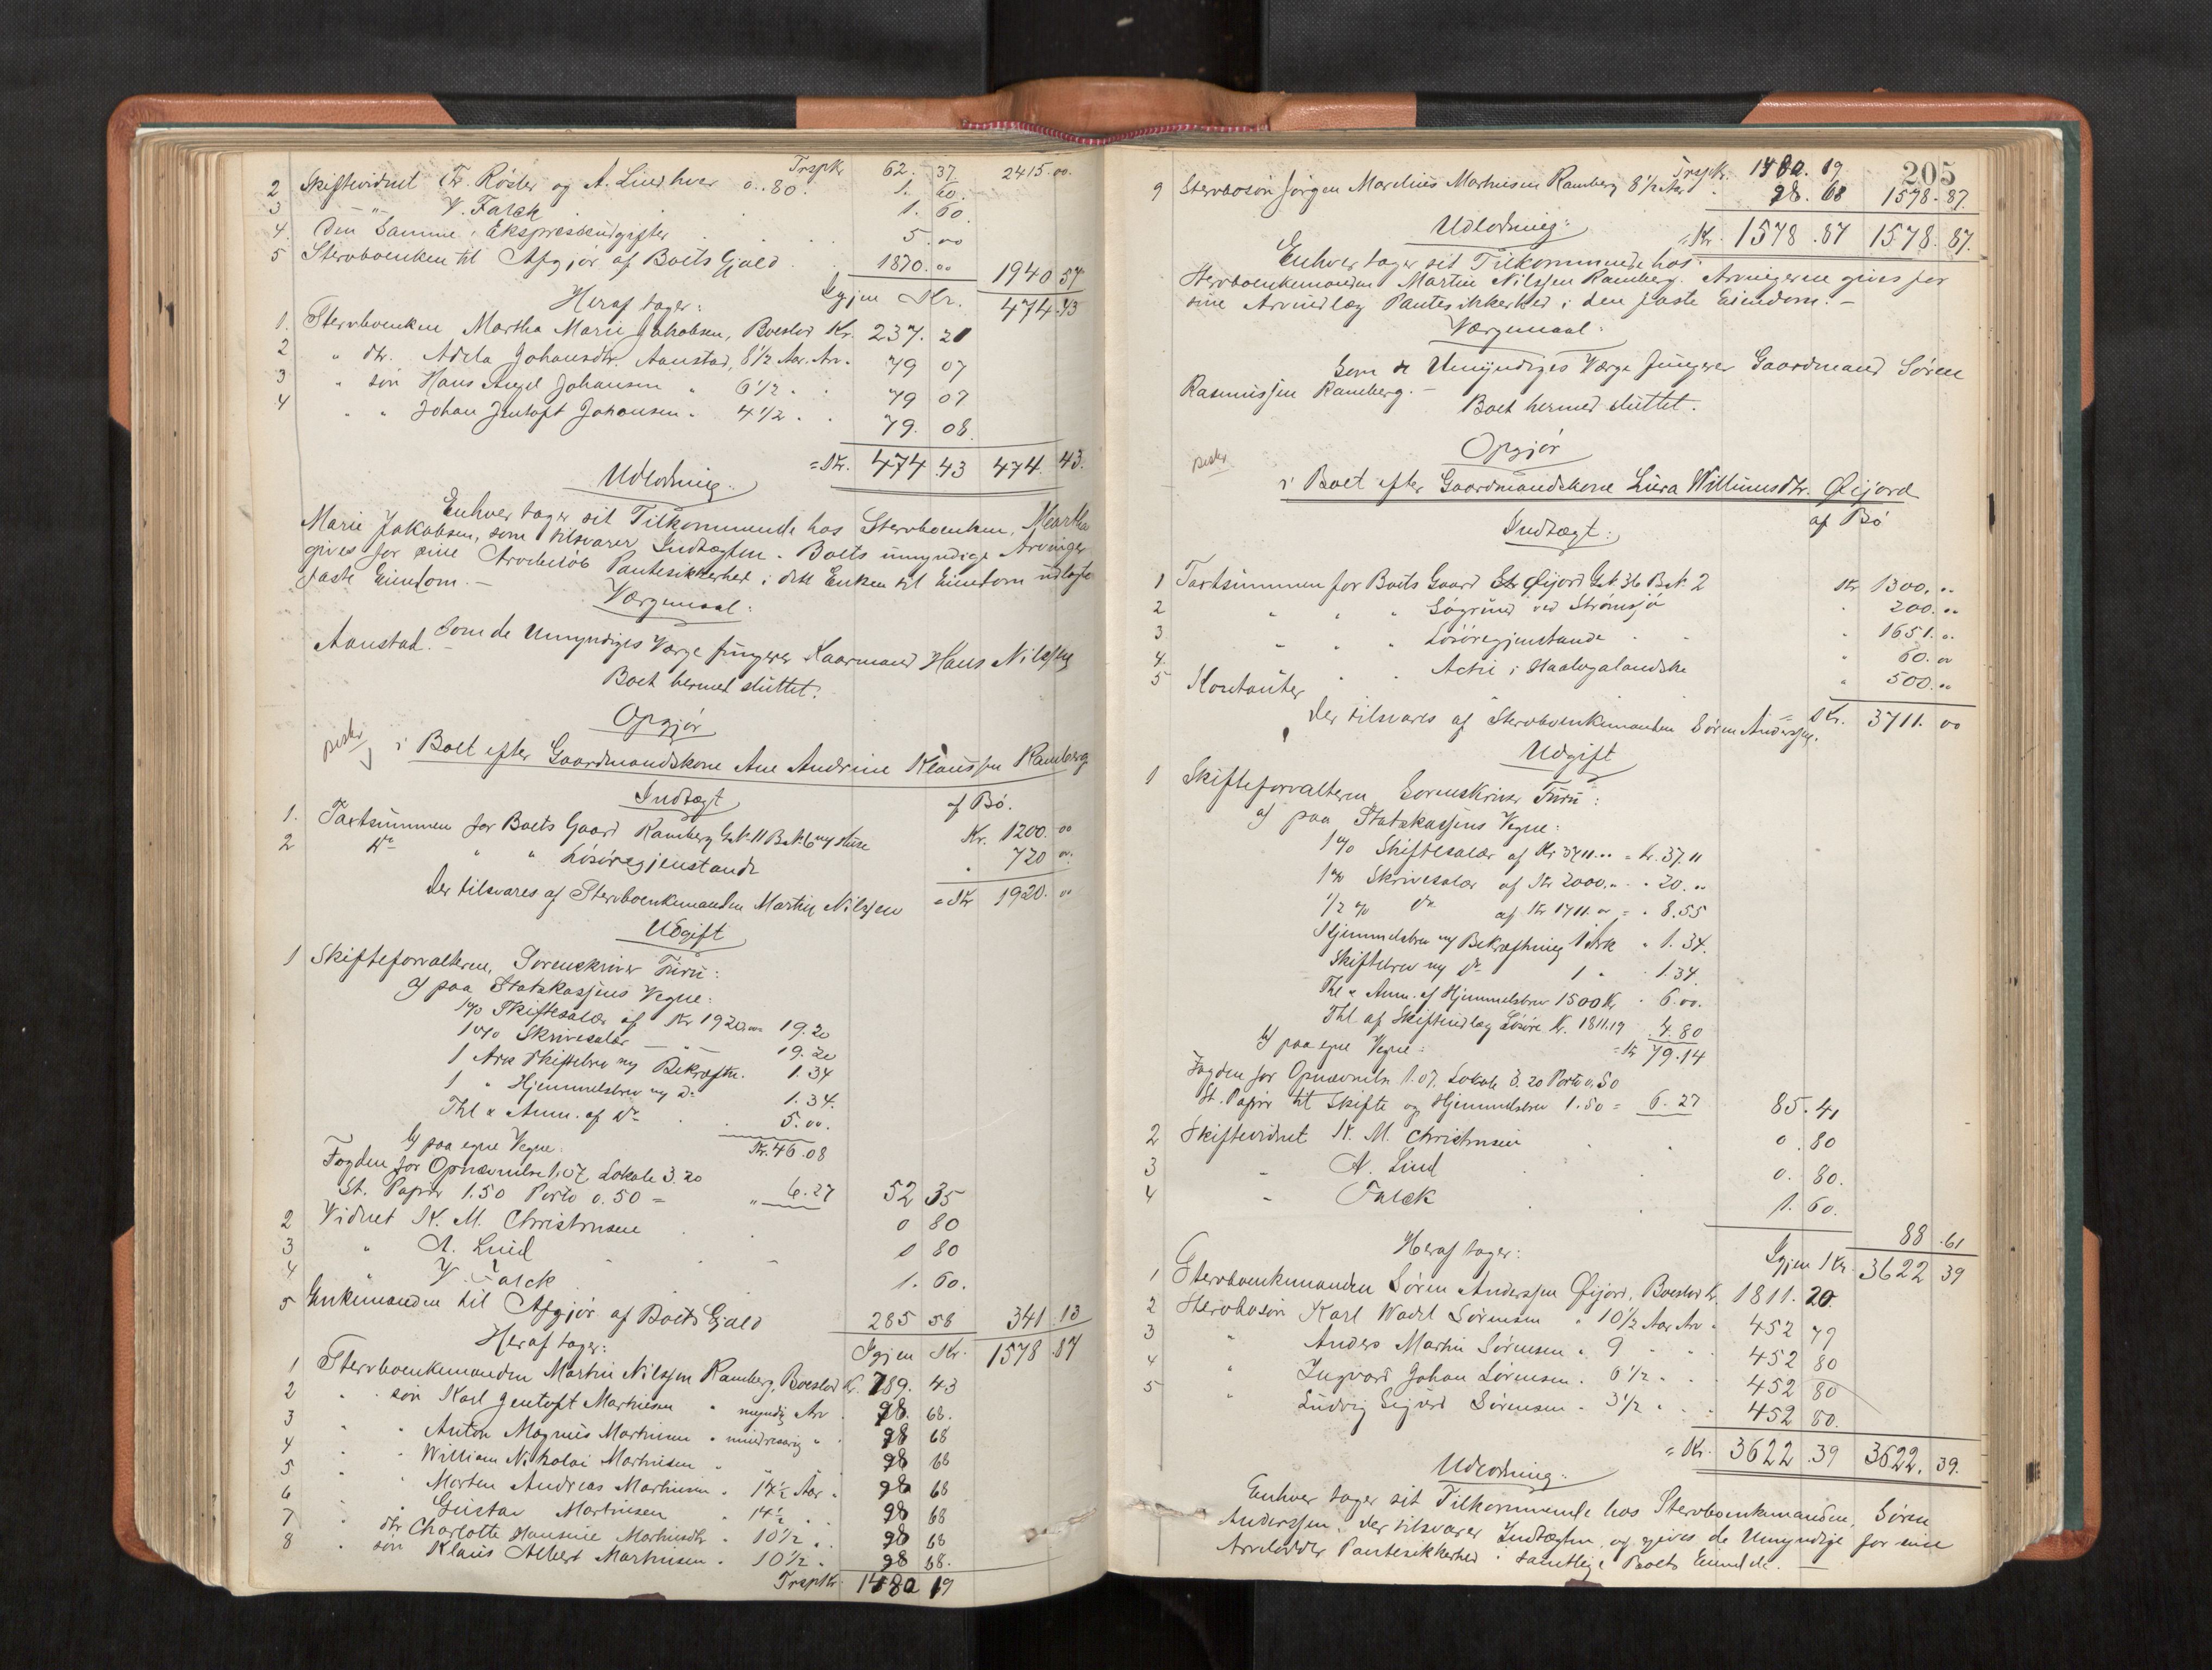 Trspkr 62. 37. 2415.00.
2 Skiftevidnet Fr. Røsler og A. Lind hver 0.80. 1. 60.
3 —"— V. Falck 1. 60
4. Den Samme i Ekspressudgifter 5.00
5 Stervboenken til Afgjør af Boets Gjæld 1870.00 1940 57
Igjen Kr. 474.43
Heraf tager:
1. Stervboenken Martha Marie Jakobsen, Boeslod Kr. 237. 21
2 " dtr. Adela Johansdtr. Aanstad, 8 1/2 Aar. Arv. 79 07
3 " søn Hans Angel Johansen " 6 1/2 " 79 07
4 " " Johan Jentoft Johansen " 4 1/2 " 79. 08
= Kr. 474.43 474. 43.
Udlodning:
Enhver tager sit Tilkommende hos Stervboenken, Martha
Marie Jakobsen, som tilsvarer Indtægten. Boets umyndige Arvinger
gives for sine Arvebeløb Pantesikkerhed i det Enken til Eiendom udlagte
faste Eiendom.—
Værgemaal:
Som de Umyndiges Værge fungerer Kaarmand Hans Nilssen
Aanstad.—
Boet hermed sluttet.
Opgjør
i Boet efter Gaardmandskone Ane Andrine Klaussen Ramberg
af Bø.
Indtægt
1. Taxtsummen for Boets Gaard Ramberg G.N. 11 B.N. 6 m/ Huse Kr. 1200.00
2 do " " Løsøregjenstande " 720 00.
Der tilsvares af Stervboenkemanden Martin Nilssen = Kr 1920.00
Udgift
1 Skifteforvalteren, Sorenskriver Furu:
a/ paa Statskassens Vegne:
1% Skiftesalær af Kr 1920.00 19.20
1% Skrivesalær —"— 19.20
1 Ark Skiftebrev m/ Bekræftn. 1.34
1 " Hjemmelsbrev m/ do 1.34.
Thl & Ann. af do 5.00.
Kr. 46.08
b/ paa egne Vegne:
Fogden for Opnævnelse 1.07. Lokale 3.20
St. Papir 1.50 Porto 0.50 = " 6.27 52 35
2 Vidnet K. M. Christensen 0 80
3 " A. Lind 0 80
4 " V. Falck 1. 60.
5 Enkemanden til Afgjør af Boets Gjæld 285 58 341.13
Heraf tager: Igjen Kr. 1578.87
1 Stervboenkemanden Martin Nilssen Ramberg, Boeslod Kr. 789. 43
2 " søn Karl Jentoft Martinsen " myndig Arv 98. 68.
3 " " Anton Magnus Martinsen " mindreaarig " 98 68
4 " " William Nikolai Martinsen " " " 98 68
5 " " Morten Andreas Martinsen " 17 1/2 Aar " 98 68
6 " " Gustav Martinsen " 14 1/2 " 98 68
7 " dtr Charlotte Hansine Martinsdtr " 10 1/2 " 98 68
8 " søn Klaus Albert Martinsen " 10 1/2 " 98 68.
TrspKr. 1480 19
205
Trspkr. 1480. 19
9 Stervbosøn Jørgen Marelius Martinsen Ramberg 8 1/2 Aar 98. 68 1578.87.
= Kr. 1578.87 1578.87.
Udlodning:
Enhver tager sit Tilkommende hos
Stervboenkemanden Martin Nilssen Ramberg. Arvingerne gives for
sine Arvudlæg Pantesikkerhed i den faste Eiendom.—
Værgemaal:
Som de Umyndiges Værge fungerer Gaardmand Søren
Rasmussen Ramberg.—
Boet hermed sluttet.
Opgjør
i Boet efter Gaardmandskone Lura Willumsdtr. Øijord
af Bø
Indtægt:
1 Taxtsummen for Boets Gaard Øijord G.N. 36 B.N. 2 Kr 1300.00
2 " " " Søgrund ved Strømsjø " 200.00
3 " " " Løsøregjenstande " 1651.00
4. " " Actie i Haalogalandske " 60.00
5 Kontanter " 500.00
Der tilsvares af Stervboenkemanden Søren Anderssen. = Kr. 3711.00
Udgift
1 Skifteforvalteren Sorenskriver Furu:
a/ paa Statskassens Vegne:
1% Skiftesalær af Kr 3711.00 = Kr. 37.11
1% Skrivesalær af Kr 2000.00 " 20.00
1/2 % do af Kr 1711.00 = " 8.55
Hjemmelsbrev m/ Bekræftning 1 Ark " 1.34.
Skiftebrev m/ do 1 " " 1.34.
Thl & Ann. af Hjemmelsbrev 1500 Kr " 6.00.
Thl. af Skifteudlæg Løsøre Kr. 1811.19 4.80
= Kr 79.14
b/ paa egne Vegne:
Fogden for Opnævnelse 1.07. Lokale 3.20 Porto 0.50
St. Papir til Skifte og Hjemmelsbrev 1.50 = 6.27 85.41
2 Skiftevidnet K. M. Christensen 0.80
3 " A. Lind 0.80.
4 " Falck 1.60.
88.61
Heraf tager: Igjen Kr. 3622 39
1 Stervboenkemanden Søren Anderssen Øijord, Boeslod Kr. 1811.20.
2 Stervbosøn Karl Wadel Sørensen " 10 1/2 Aar Arv " 452 79
3 " Anders Martin Sørensen " 9 " 452 80
4 " Ingvard Johan Sørensen " 6 1/2 " 452 80
5 " Ludvig Sigurd Sørensen " 3 1/2 " 452 80.
= Kr. 3622.39 3622. 39.
Udlodning:
Enhver tager sit Tilkommende hos Stervboenkemanden, Søren
Anderssen, der tilsvarer Indtægten, og gives de Umyndige for sine
Arvelodder Pantesikkerhed i samtlige Boets Eiendele.—